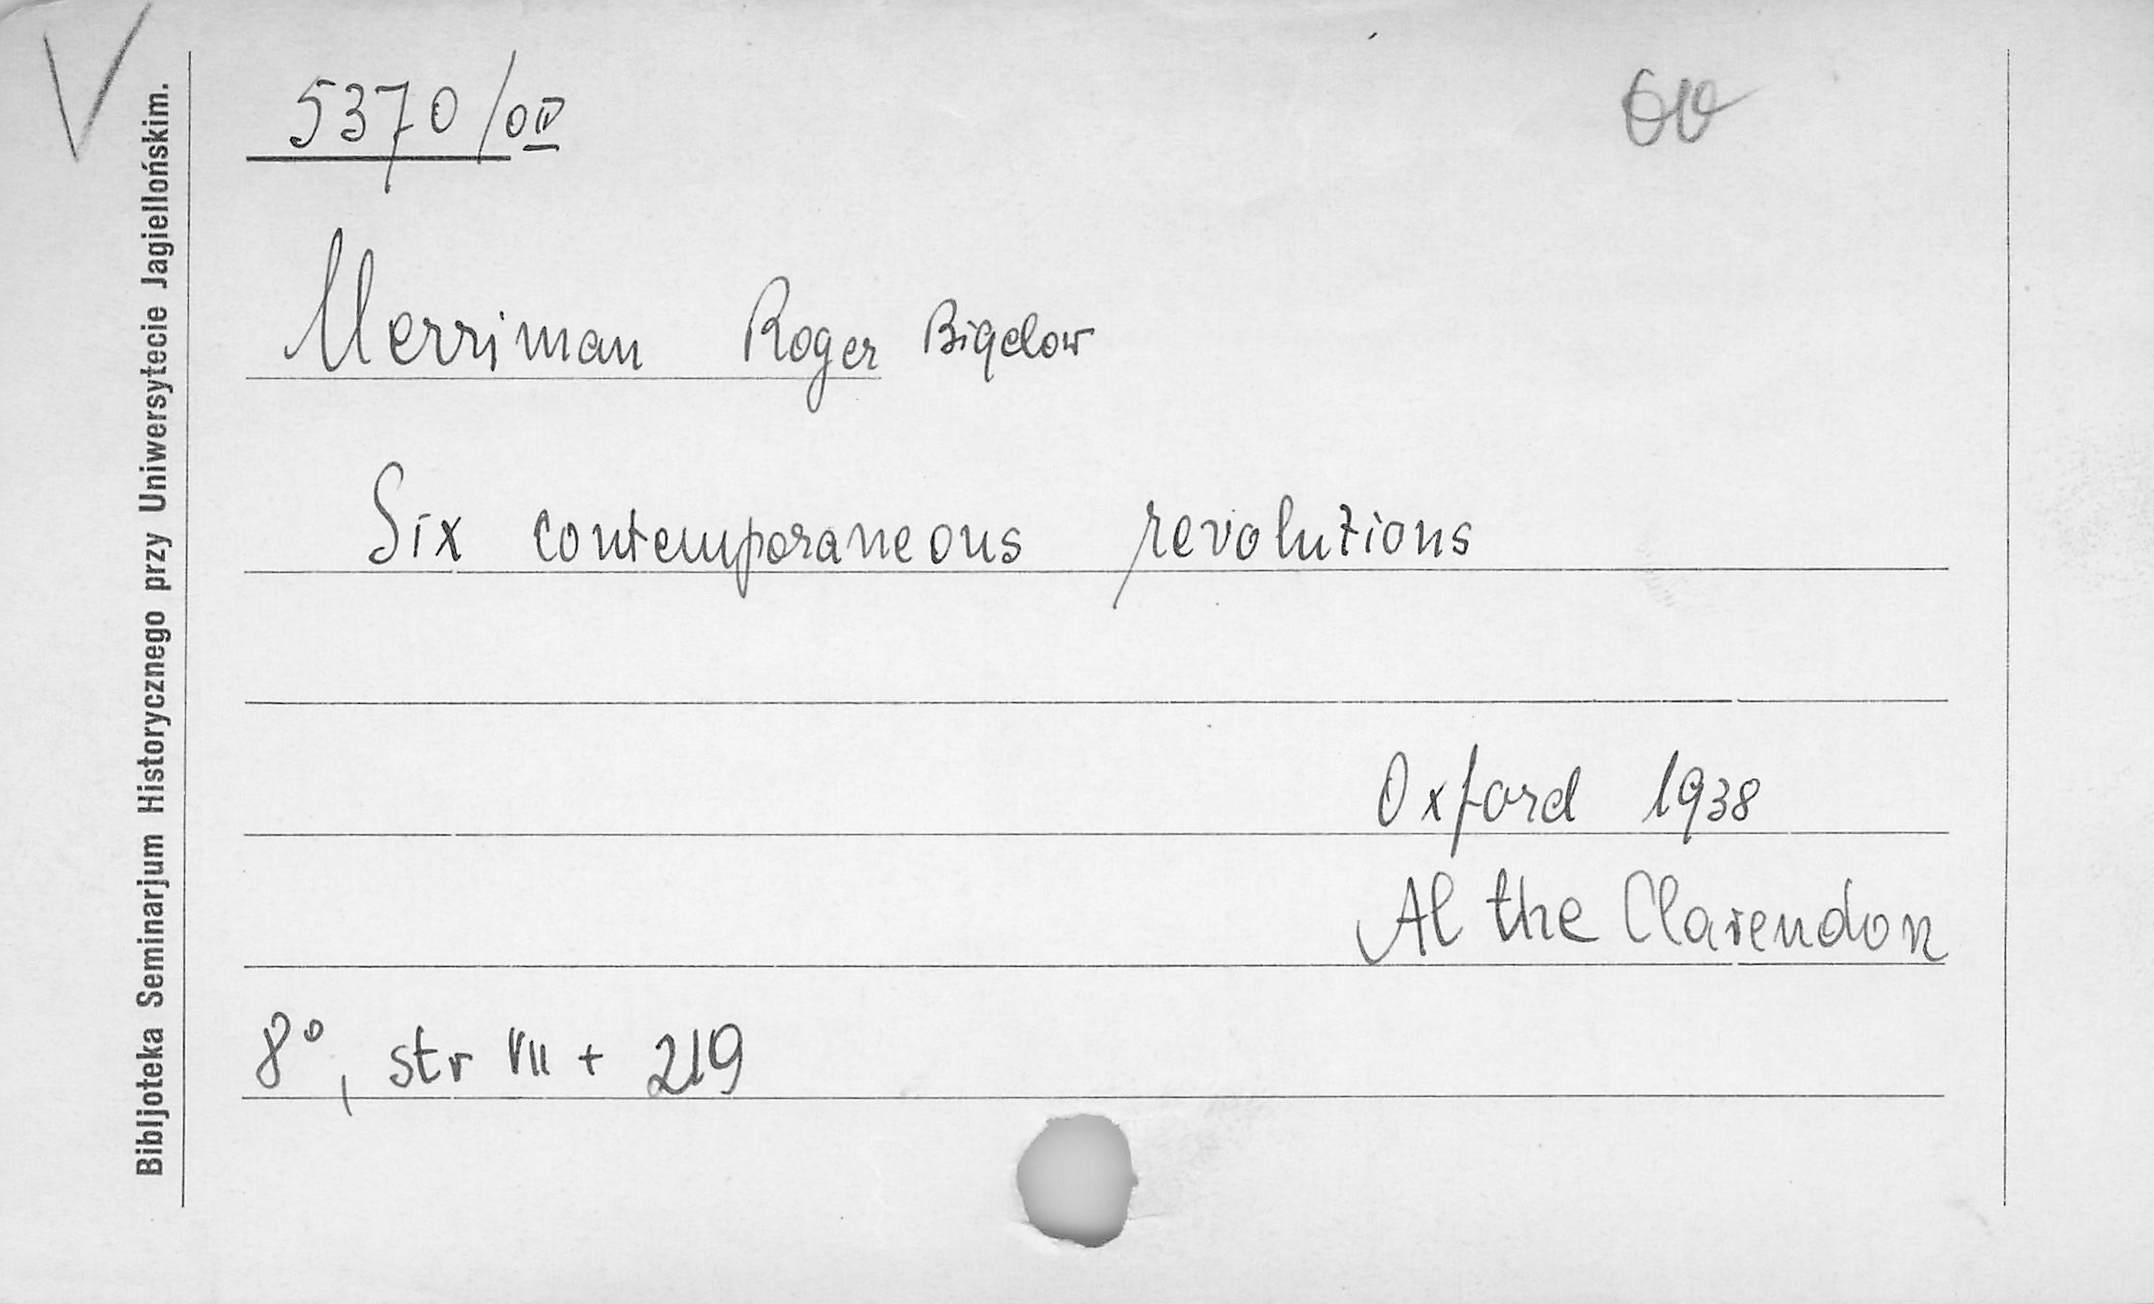 5370/0 IV
Merriman Roger Bigelow
Six contemporaneous revolutions
Oxford 1938
At the Clarendon
8°, str VII + 219
Bibljoteka Seminarjum Historycznego przy Uniwersytecie Jagiellońskim.